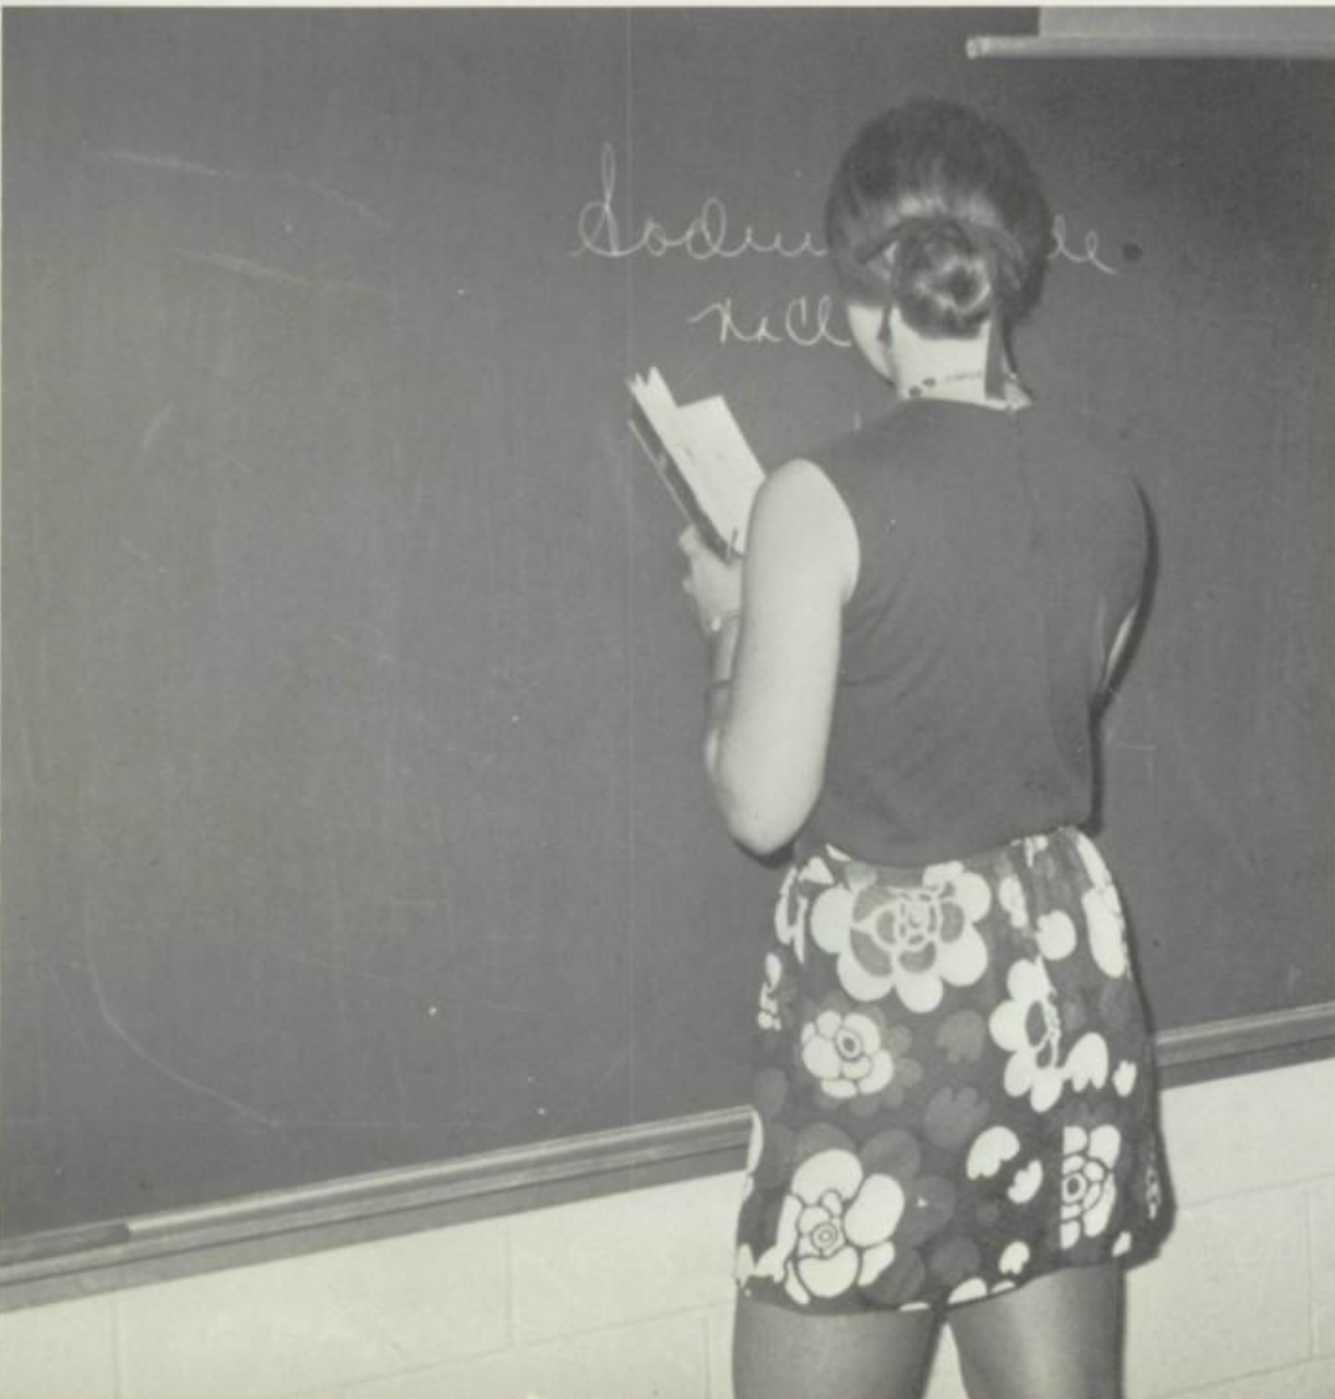 Sodium
NaCl